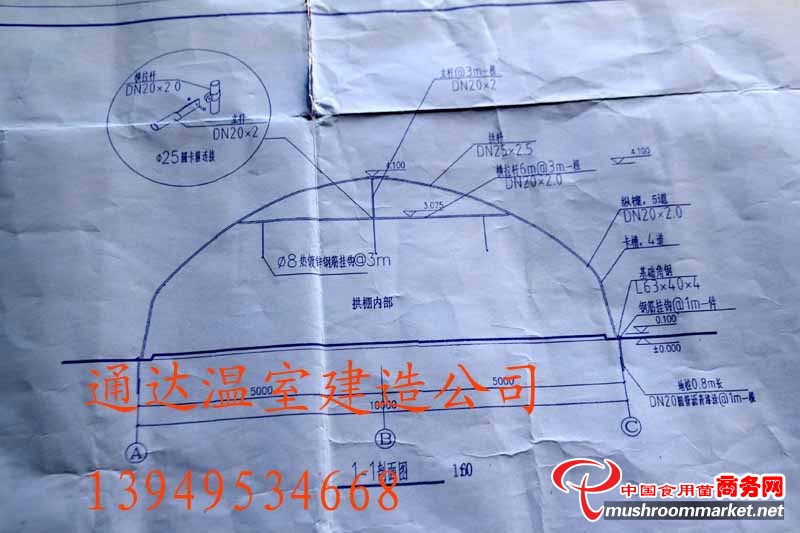 横拉杆
DN20×2.0
立杆
DN20×2
Φ25圆卡箍连接
立杆@3m一根
DN20×2
拱杆
DN25×2.5
横拉杆6m@3m一根
DN20×2.0
4.100
4.100
3.075
纵横，5道
DN20×2.0
卡槽，4道
基础角钢
L63×40×4
钢筋挂钩@1m一件
0.100
±0.000
Φ8热镀锌钢筋挂钩@3m
拱棚内部
地桩0.8m长
DN20圆管沥青漆涂@1m一根
通达温室建造公司
5000
5000
10000
A
B
C
1-1剖面图
1:60
13949534668
中国食用菌商务网
mushroommarket.net